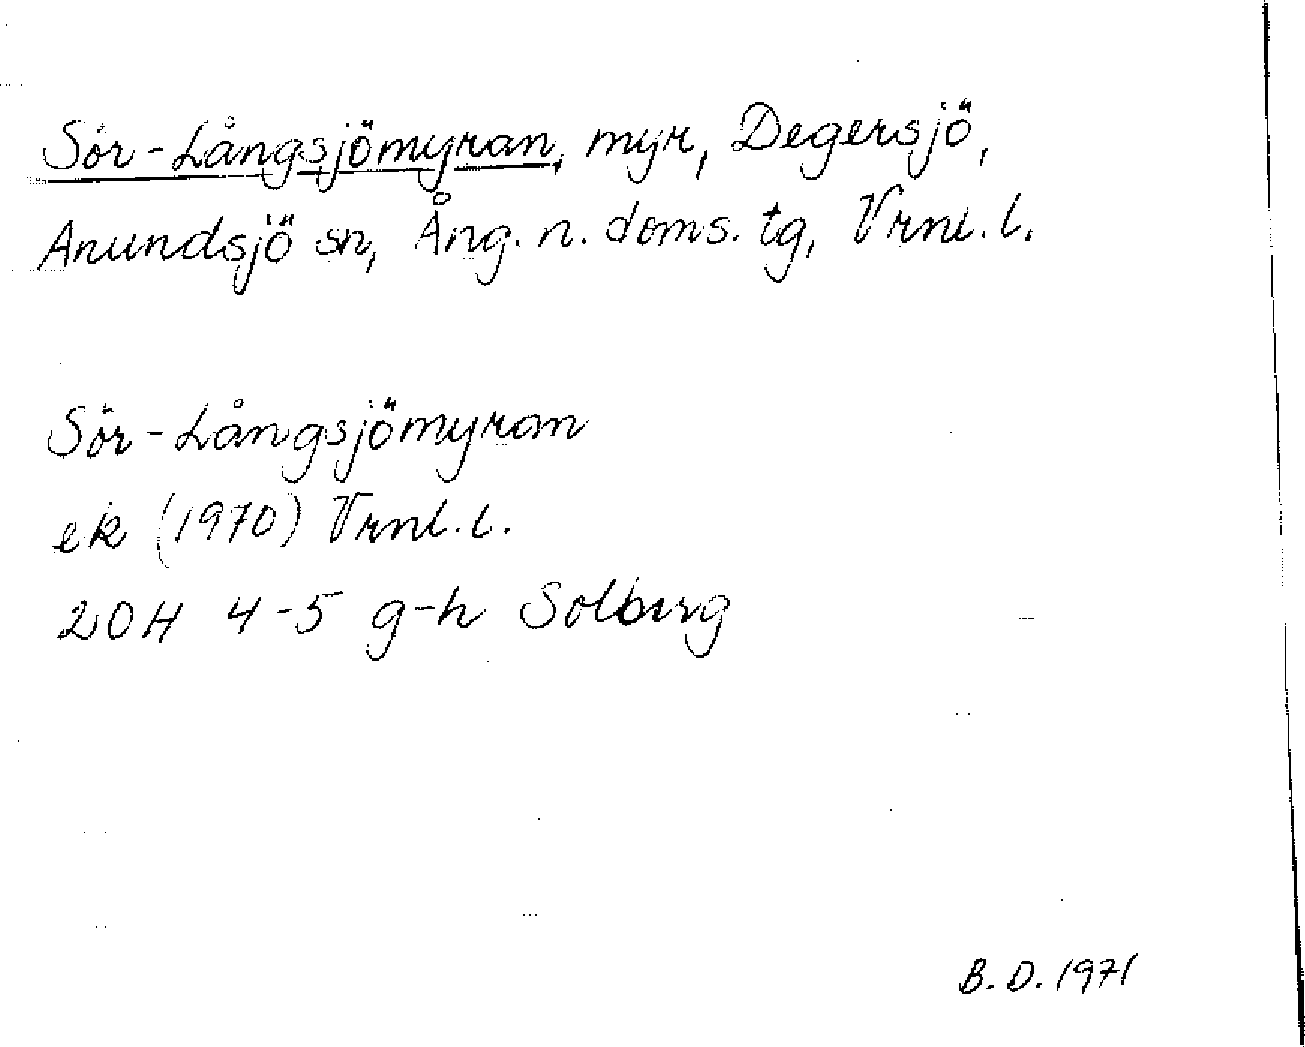 Sör-Långsjömyran, myr, Degersjö,
Anundsjö sn, Ång. n. doms. tg, Vrnl. l.
Sör-Långsjömyran
ek (1970) Vrnl. l.
20H 4-5 g-h Solberg
B. D. 1971